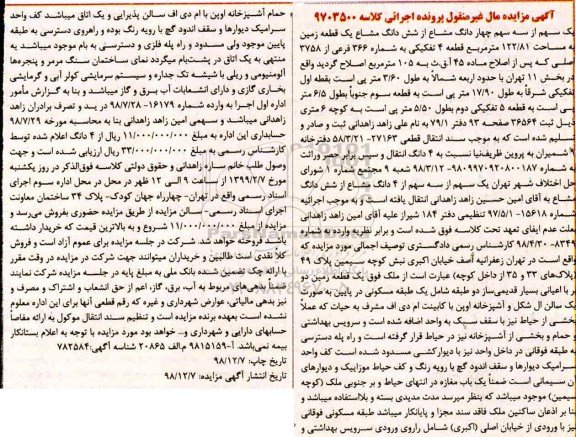 آگهی مزایده مال غیرمنقول پرونده اجرائی کلاسه ۹۷۰۳۵۰۰
یک سهم از سه سهم چهار دانگ مشاع از شش دانگ مشاع یک قطعه زمین
به مساحت ۱۲۲/۸۱ مترمربع قطعه ۴ تفکیکی به شماره ۳۶۶ فرعی از ۳۷۵۸
اصلی که پس از اصلاح ماده ۴۵ آق.ث به ۱۰۵ مترمربع اصلاح گردید واقع
در بخش ۱۱ تهران با حدود اربعه شمالاً به طول ۳/۶۰ متر پی است بقطه اول
تفکیکی شرقاً به طول ۱۷/۹۰ متر پی است به قطعه سوم جنوباً بطول ۶/۵ متر
پی است به قطعه ۵ تفکیکی دوم بطول ۵/۵۰ متر پی است به کوچه ۶ متری
ذیل ثبت ۳۶۵۶۴ صفحه ۹۳ دفتر ۲۹/۱ به نام علی زاهد زاهدانی ثبت و صادر و
تسلیم شده است که به موجب سند انتقال قطعی ۲۷۱۶۳- ۵۸/۳/۲۱ دفترخانه
شمیران به پروین ظریف‌نیا نسبت به ۴ دانگ انتقال و سپس برابر حصر وراثت
شماره ۹۸۰۹۹۷۰۹۲۰۸۰۰۱۸۷- ۹۸/۳/۱۲ شعبه ۹ مجتمع شماره ۱۰ شورای
حل اختلاف شهر تهران یک سهم از سه سهم از ۴ دانگ مشاع از شش دانگ
مشاع به آقای امین حسین زاهد زاهدانی انتقال یافته است که به موجب اجرائیه
شماره ۱۵۶۱۸- ۹۷/۵/۱ تنظیمی دفتر ۱۸۴ شیراز علیه آقای امین زاهد زاهدانی
بعلت عدم ایفای تعهد تحت کلاسه فوق شده است و برابر نظریه وارده به شماره
۸۳۴۹- ۹۸/۴/۳۰ کارشناس رسمی دادگستری توصیف اجمالی مورد مزایده که
واقع است در تهران زعفرانیه آصف خیابان اکبری نبش کوچه سیمین پلاک ۴۹
(پلاک‌های ۳۳ و ۳۵ از داخل کوچه) عبارت است از ملک فوق یک قطعه زمین دو
بر اعیانی بسیار قدیمی‌ساز دو طبقه شامل یک طبقه مسکونی در پایین به صورت
یک سالن ال شکل و آشپزخانه اوپن با کابینت ام دی اف مشرف به حیات که عملا
بخشی از حیاط نیز با سقف سبک به واحد اضافه شده است و سرویس بهداشتی
و حمام و بخشی از آشپزخانه نیز در حیاط قرار گرفته است و راه پله دسترسی
به طبقه فوقانی در داخل واحد نیز با دیوارکشی مسدود شده است کف واحد
سرامیک دیوارها و سقف اندود گچ با رویه رنگ و کف حیاط موزاییک و دیوارهای
آن سیمانی است ضمناً یک باب مغازه در انتهای حیاط و بر جنوبی ملک (کوچه
سیمین) موجود میباشد که بنظر میرسد مدت مدیدی بسته و بلااستفاده میباشد و
بنا بر اذعان ساکنین ملک فاقد سند مجزا و پایانکار میباشد طبقه مسکونی فوقانی
نیز با ورودی از خیابان اصلی (اکبری) شامل راروی ورودی سرویس بهداشتی و
حمام آشپزخانه اوپن با ام دی اف سالن پذیرایی و یک اتاق میباشد کف واحد
سرامیک دیوارها و سقف اندود گچ با رویه رنگ بوده و راهروی دسترسی به طبقه
پایین موجود ولی مسدود و راه پله فلزی و دسترسی به بام موجود میباشد به
منتهی به یک اتاق در پشت‌بام میگردد نمای ساختمان سنگ مرمر و پنجره‌ها
آلومنیومی و ریلی با شیشه تک جداره و سیستم سرمایشی کولر آبی و گرمایشی
بخاری گازی و دارای انشعابات آب برق و گاز میباشد و بنا به گزارش مأمور
اداره اول اجرا به وارده شماره ۱۶۱۷۹- ۹۸/۷/۲۸ در ید و تصرف برادران زاهد
زاهدانی میباشد و سهمی امین زاهد زاهدانی بنا به محاسبه مورخه ۹۸/۷/۲۹
حسابداری این اداره به مبلغ ۱۱/۰۰۰/۰۰۰/۰۰۰ ریال از ۴ دانگ اعلام شده توسط
کارشناس رسمی به مبلغ ۳۳/۰۰۰/۰۰۰/۰۰۰ ریال ارزیابی شده است و جهت
وصول طلب خانم ساره زاهدانی و حقوق دولتی کلاسه فوق‌الذکر در روز یکشنبه
مورخ ۱۳۹۹/۲/۷ از ساعت ۹ الی ۱۲ ظهر در محل اداره سوم اجرای
اسناد رسمی واقع در تهران- چهارراه جهان کودک- پلاک ۳۴ ساختمان معاونت
اجرای اسناد رسمی- سالن مزایده از طریق مزایده حضوری بفروش می‌رسد و
مزایده از مبلغ ۱۱/۰۰۰/۰۰۰/۰۰۰ شروع و به بالاترین قیمت که خریدار داشته
باشد فروخته خواهد شد. شرکت در جلسه مزایده برای عموم آزاد است و فروش
کلاً نقدی است طالبین و خریداران میتوانند جهت شرکت در مزایده در وقت مقرر
با ارائه چک تضمین شده بانک ملی به مبلغ پایه در جلسه مزایده شرکت نمایند
ضمناً بدهی‌های مربوط به آب، برق، گاز، اعم از حق انشعاب و اشتراک و مصرف و
نیز بدهی مالیاتی، عوارض شهرداری و غیره که رقم قطعی آنها برای این اداره معلوم
نشده است بعهده برنده مزایده است و تنظیم سند انتقال موکول به ارائه مفاصا
حسابهای دارایی و شهرداری و... خواهد بود مورد مزایده با توجه به اعلام بستانکار
بیمه نمی‌باشد. آ-۹۸۱۵۱۵۹ م الف ۲۰۸۶۵ شناسه آگهی: ۷۸۲۵۸۴
تاریخ چاپ: ۹۸/۱۲/۷
تاریخ انتشار آگهی مزایده: ۹۸/۱۲/۷